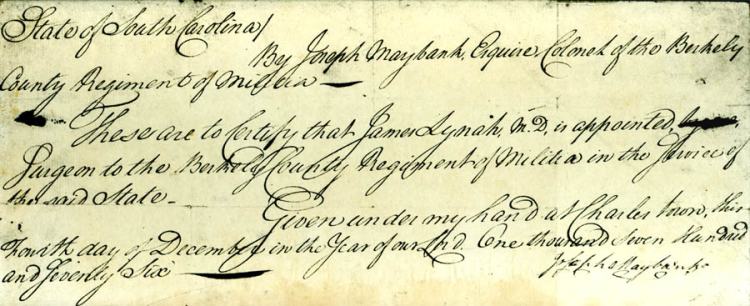 State of South Carolina/
By Joseph Maybank, Esquire, Colonel of the Berkely
County Regiment of Militia
These are to Certify that James Lynah, M.D, is appointed,
Surgeon to the Berkely County Regiment of Militia in the Service of
the said State
Given under my hand at Charles Town, this
Fourth day of December in the Year of our Lord. One thousand Seven Hundred
and Seventy Six
Joseph Maybank